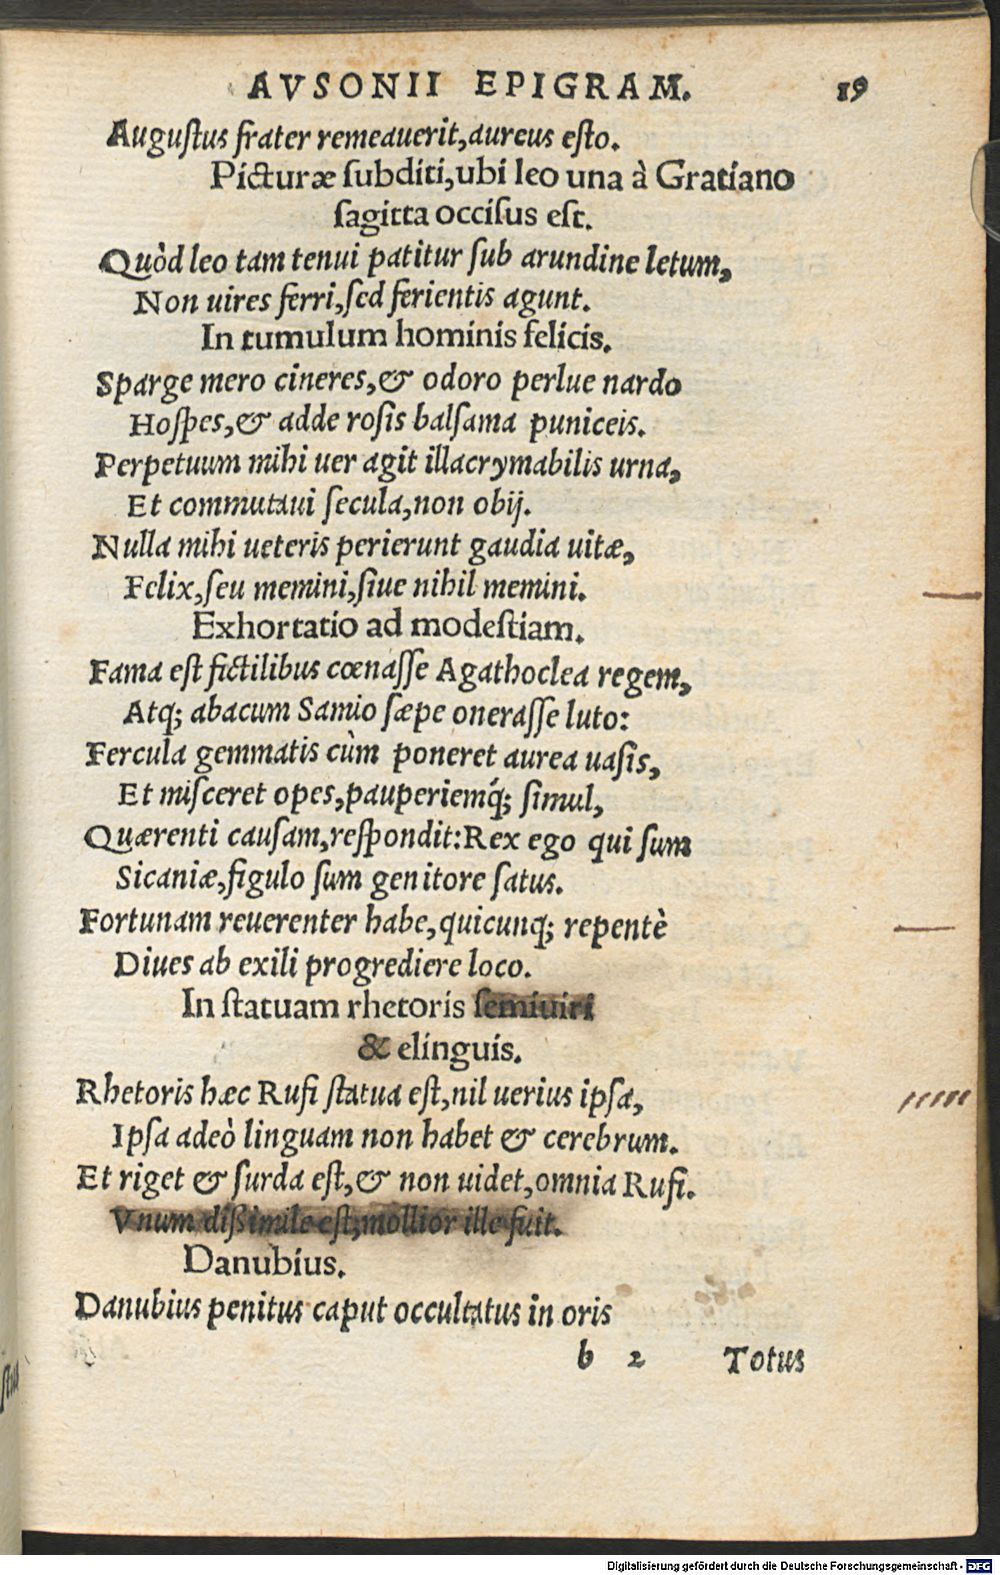 AVSONII EPIGRAM. 19
Auguſtus frater remeauerit,aureus eſto.
Picturæ ſubditi,ubi leo una à Gratiano
ſagitta occiſus eſt.
Quòd leo tam tenui patitur ſub arundine letum,
Non uires ferri,ſed ferientis agunt.
In tumulum hominis felicis.
Sparge mero cineres,& odoro perlue nardo
Hoſpes,& adde roſis balſama puniceis.
Perpetuum mihi uer agit illacrymabilis urna,
Et commutaui ſecula,non obij.
Nulla mihi ueteris perierunt gaudia uitæ,
Felix,ſeu memini,ſiue nihil memini.
Exhortatio ad modeſtiam.
Fama eſt fictilibus cœnaſſe Agathoclea regem,
Atq; abacum Samio ſæpe oneraſſe luto:
Fercula gemmatis cùm poneret aurea uaſis,
Et miſceret opes,pauperiemq́; ſimul,
Quærenti cauſam,reſpondit:Rex ego qui ſum
Sicaniæ,figulo ſum genitore ſatus.
Fortunam reuerenter habe,quicunq; repentè
Diues ab exili progrediere loco.
In ſtatuam rhetoris ſemiuiri
& elinguis.
Rhetoris hæc Rufi ſtatua eſt,nil uerius ipſa,
Ipſa adeò linguam non habet & cerebrum.
Et riget & ſurda eſt,& non uidet,omnia Rufi.
Vnum dißimile eſt,mollior ille fuit.
Danubius.
Danubius penitus caput occultatus in oris
b 2 Totus
Digitalisierung gefördert durch die Deutsche Forschungsgemeinschaft - DFG